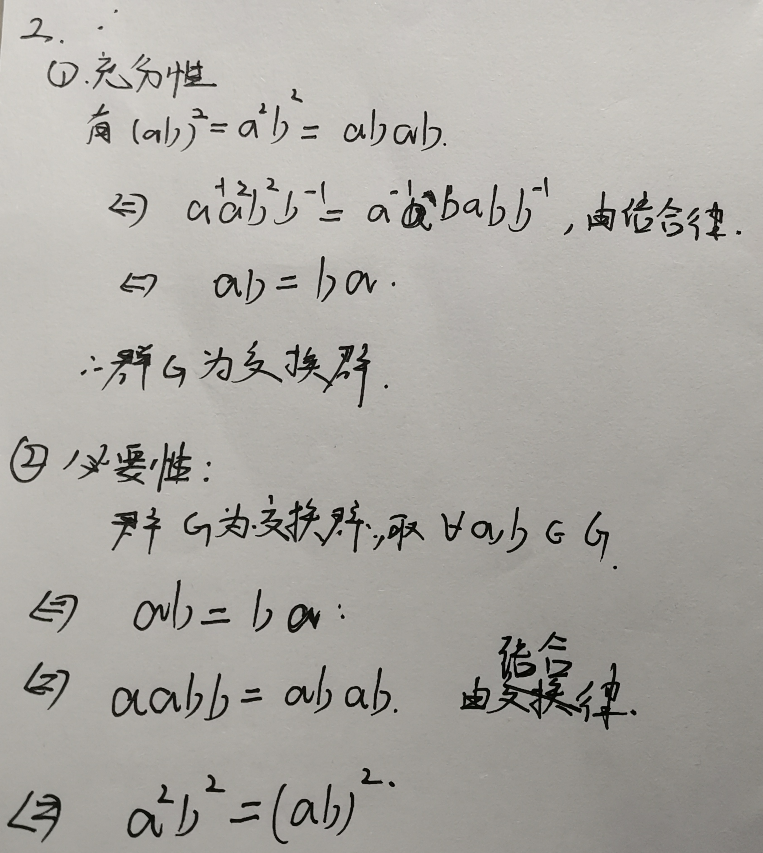 2.
①.充分性
有 (ab)² = a²b² = abab.
⇔ a⁻¹a²b²b⁻¹ = a⁻¹a babb⁻¹, 由结合律.
⇔ ab = ba.
∴群G为交换群.
② 必要性:
群G为交换群,取 ∀a,b∈G.
⇔ ab = ba.
⇔ aabb = abab. 由结合律.
⇔ a²b² = (ab)².